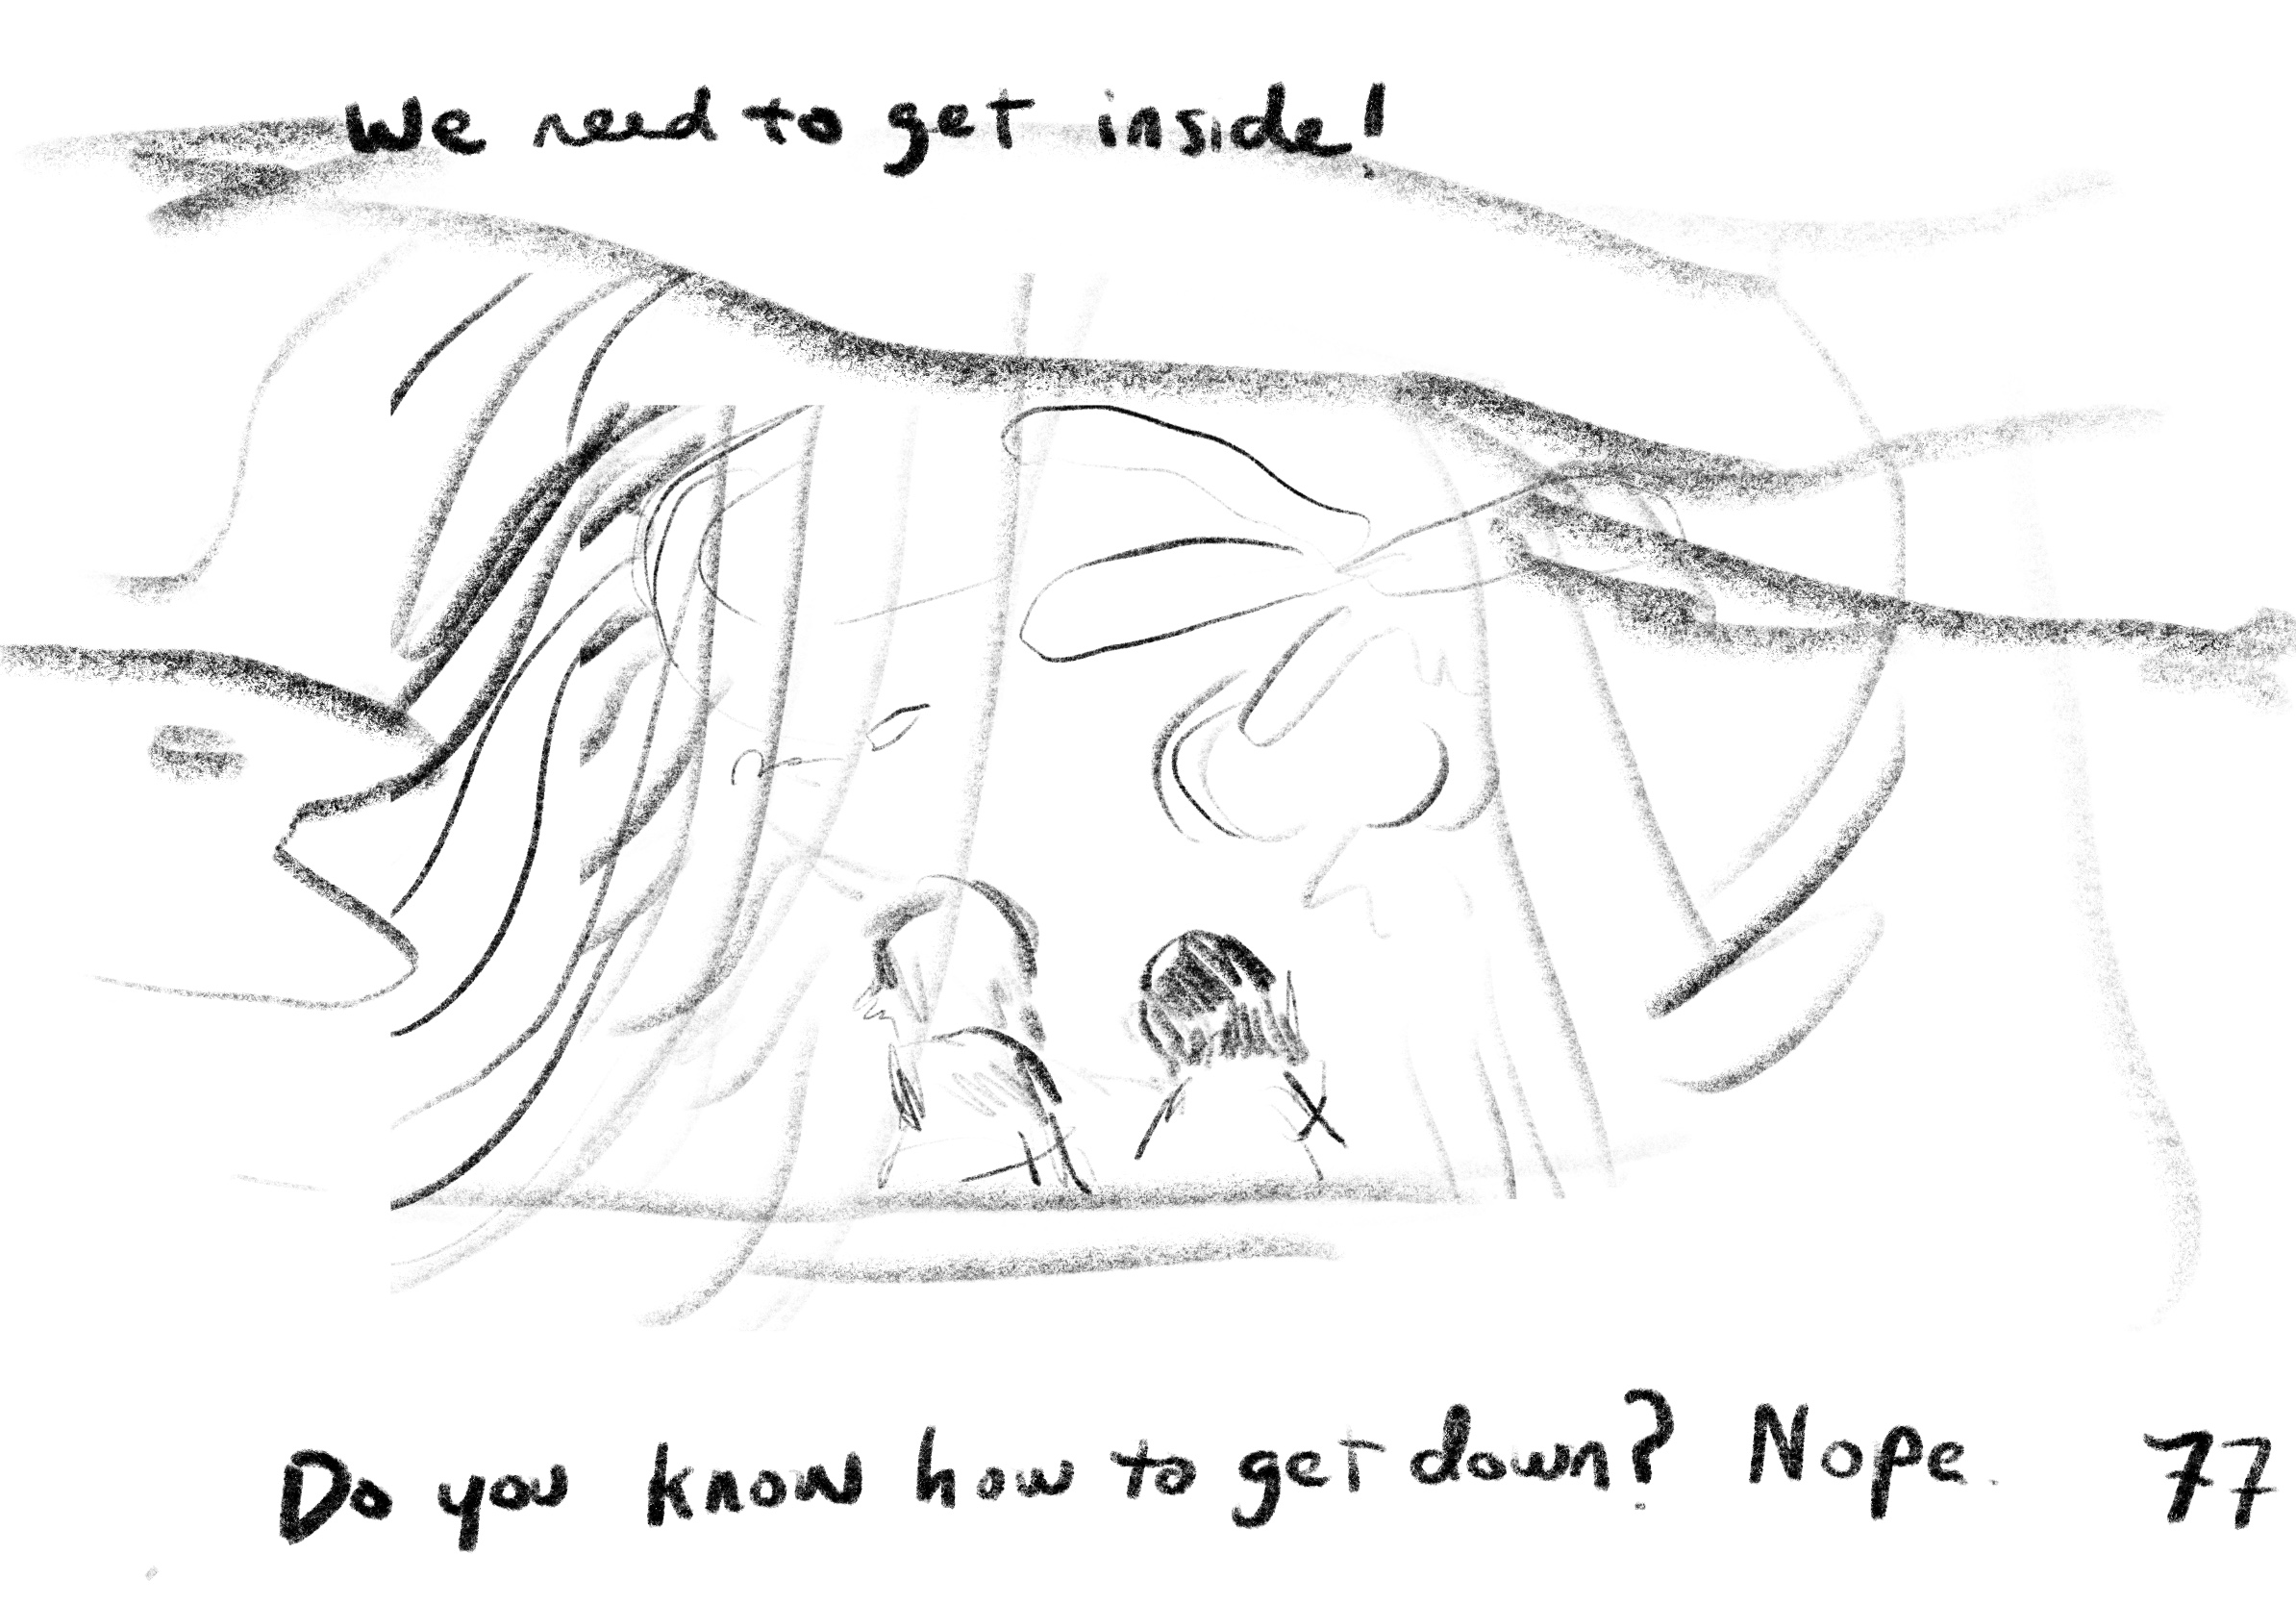 We need to get inside!
Do you know how to get down? Nope. 77